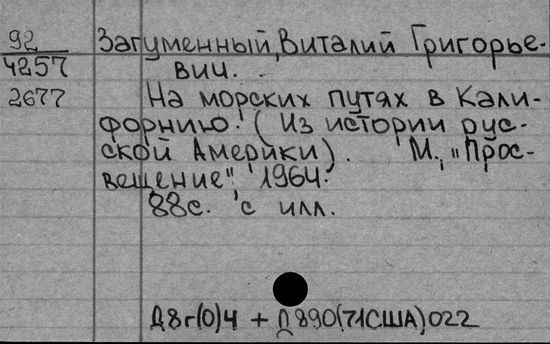 92
4257
2677
Загуменный, Виталий Григорье-
вич.
На морских путях в Кали-
форнию. (Из истории рус-
ской Америки). М., "Прос-
вещение", 1964.
88с. с илл.
Д8г(0)4 + П890(71США)022